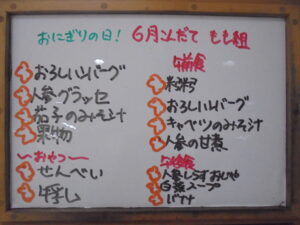 おにぎりの日! 6月12日(金) もも組
おろしハンバーグ
人参グラッセ
茄子のみそ汁
果物
〜おやつ〜
せんべい
牛乳
午前食
お粥
おろしハンバーグ
キャベツのみそ汁
人参の甘煮
午後食
人参しらすおじや
白菜スープ
バナナ